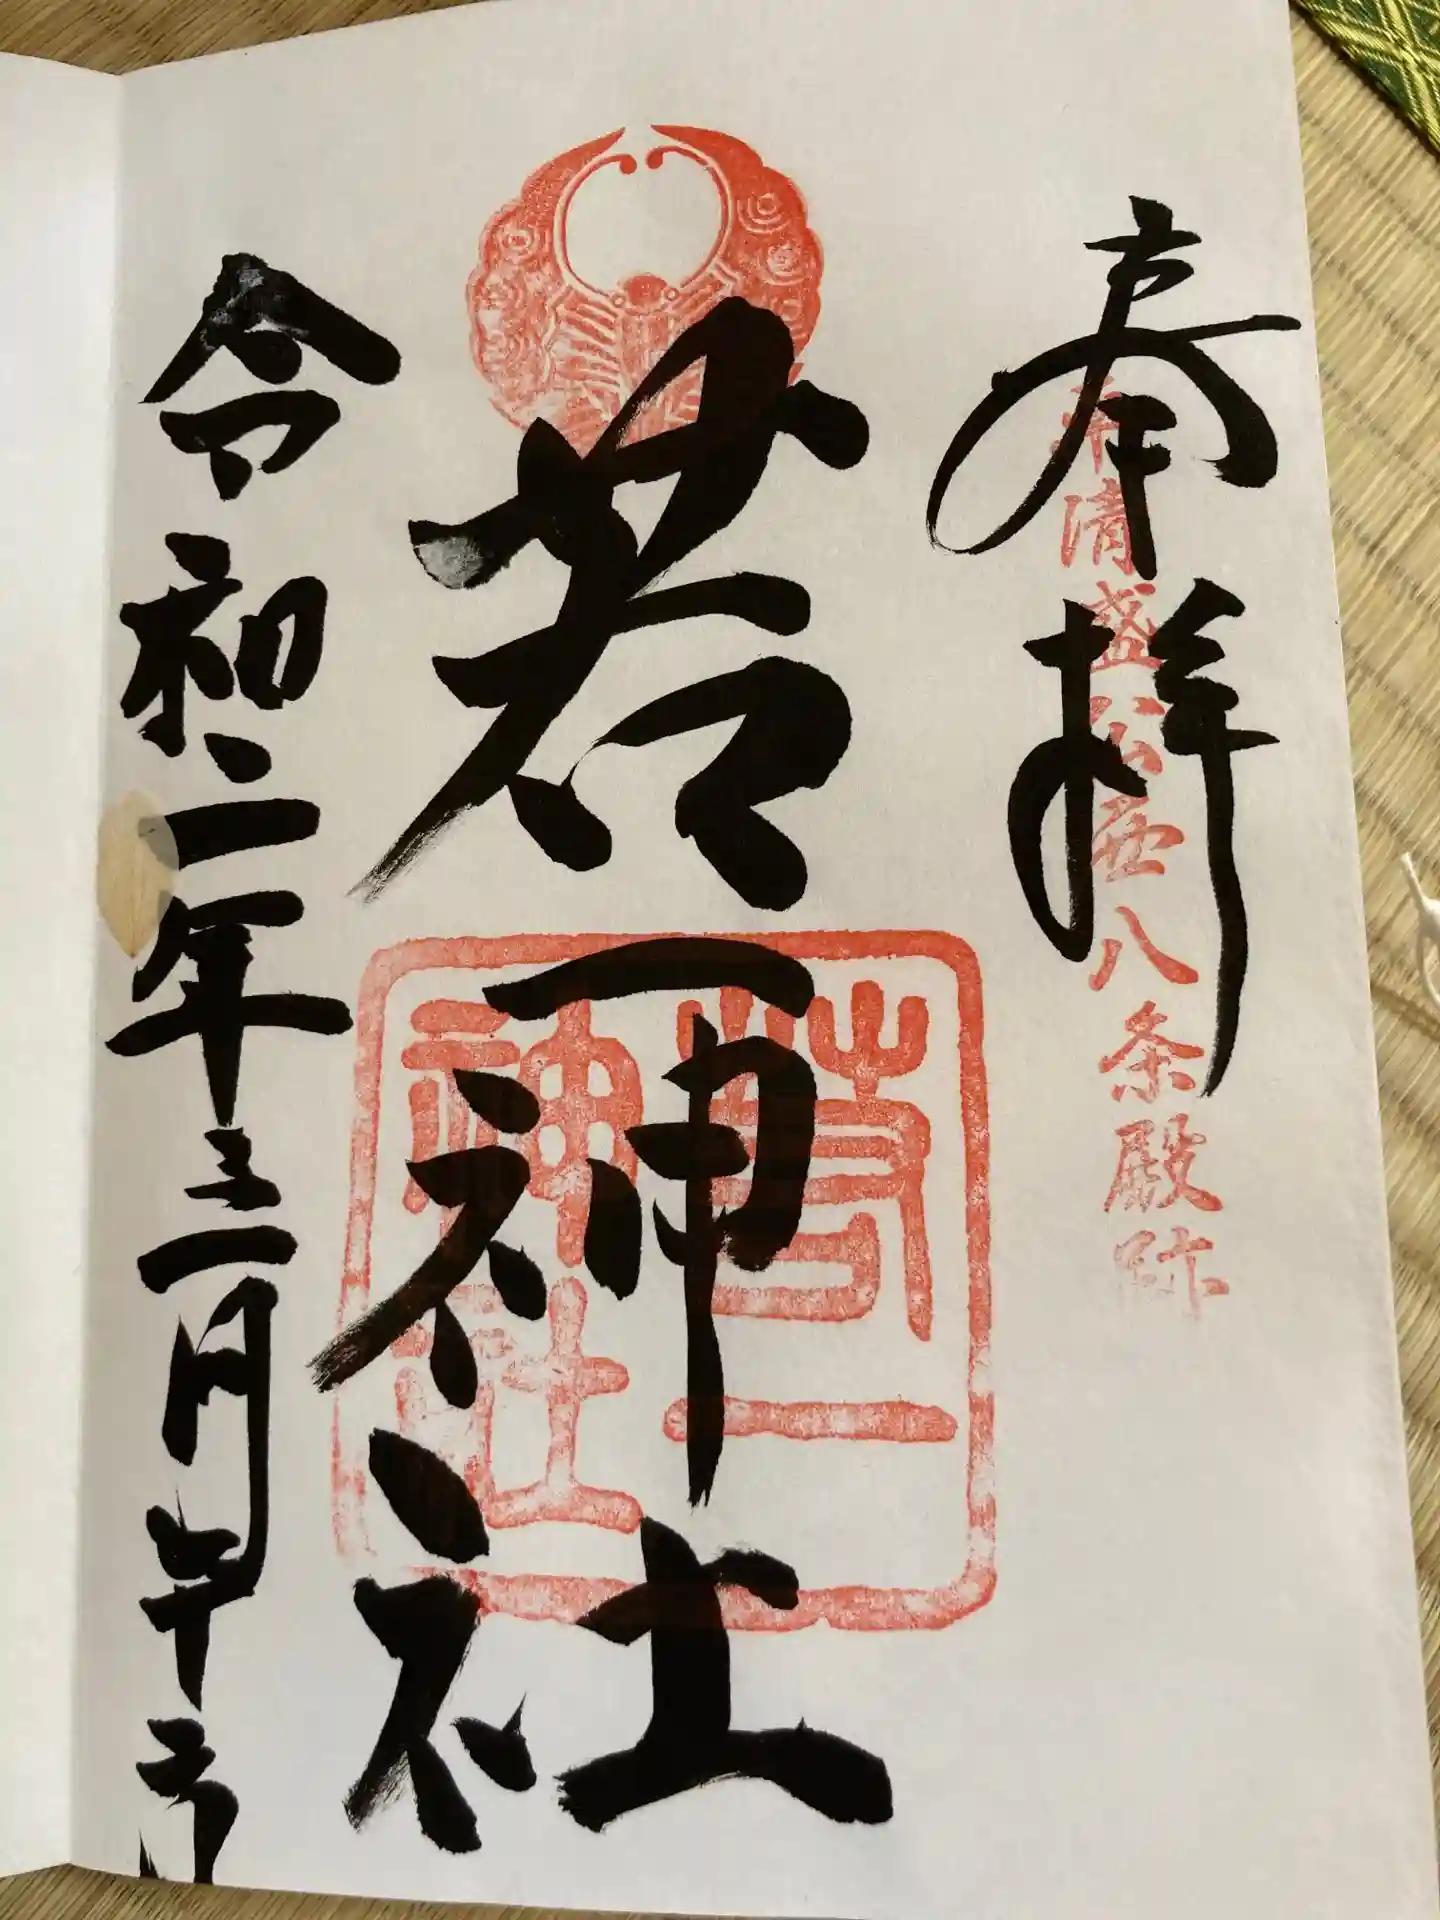 奉拝
平清盛公西八条殿跡
若一神社
若一
神社
令和二年三月